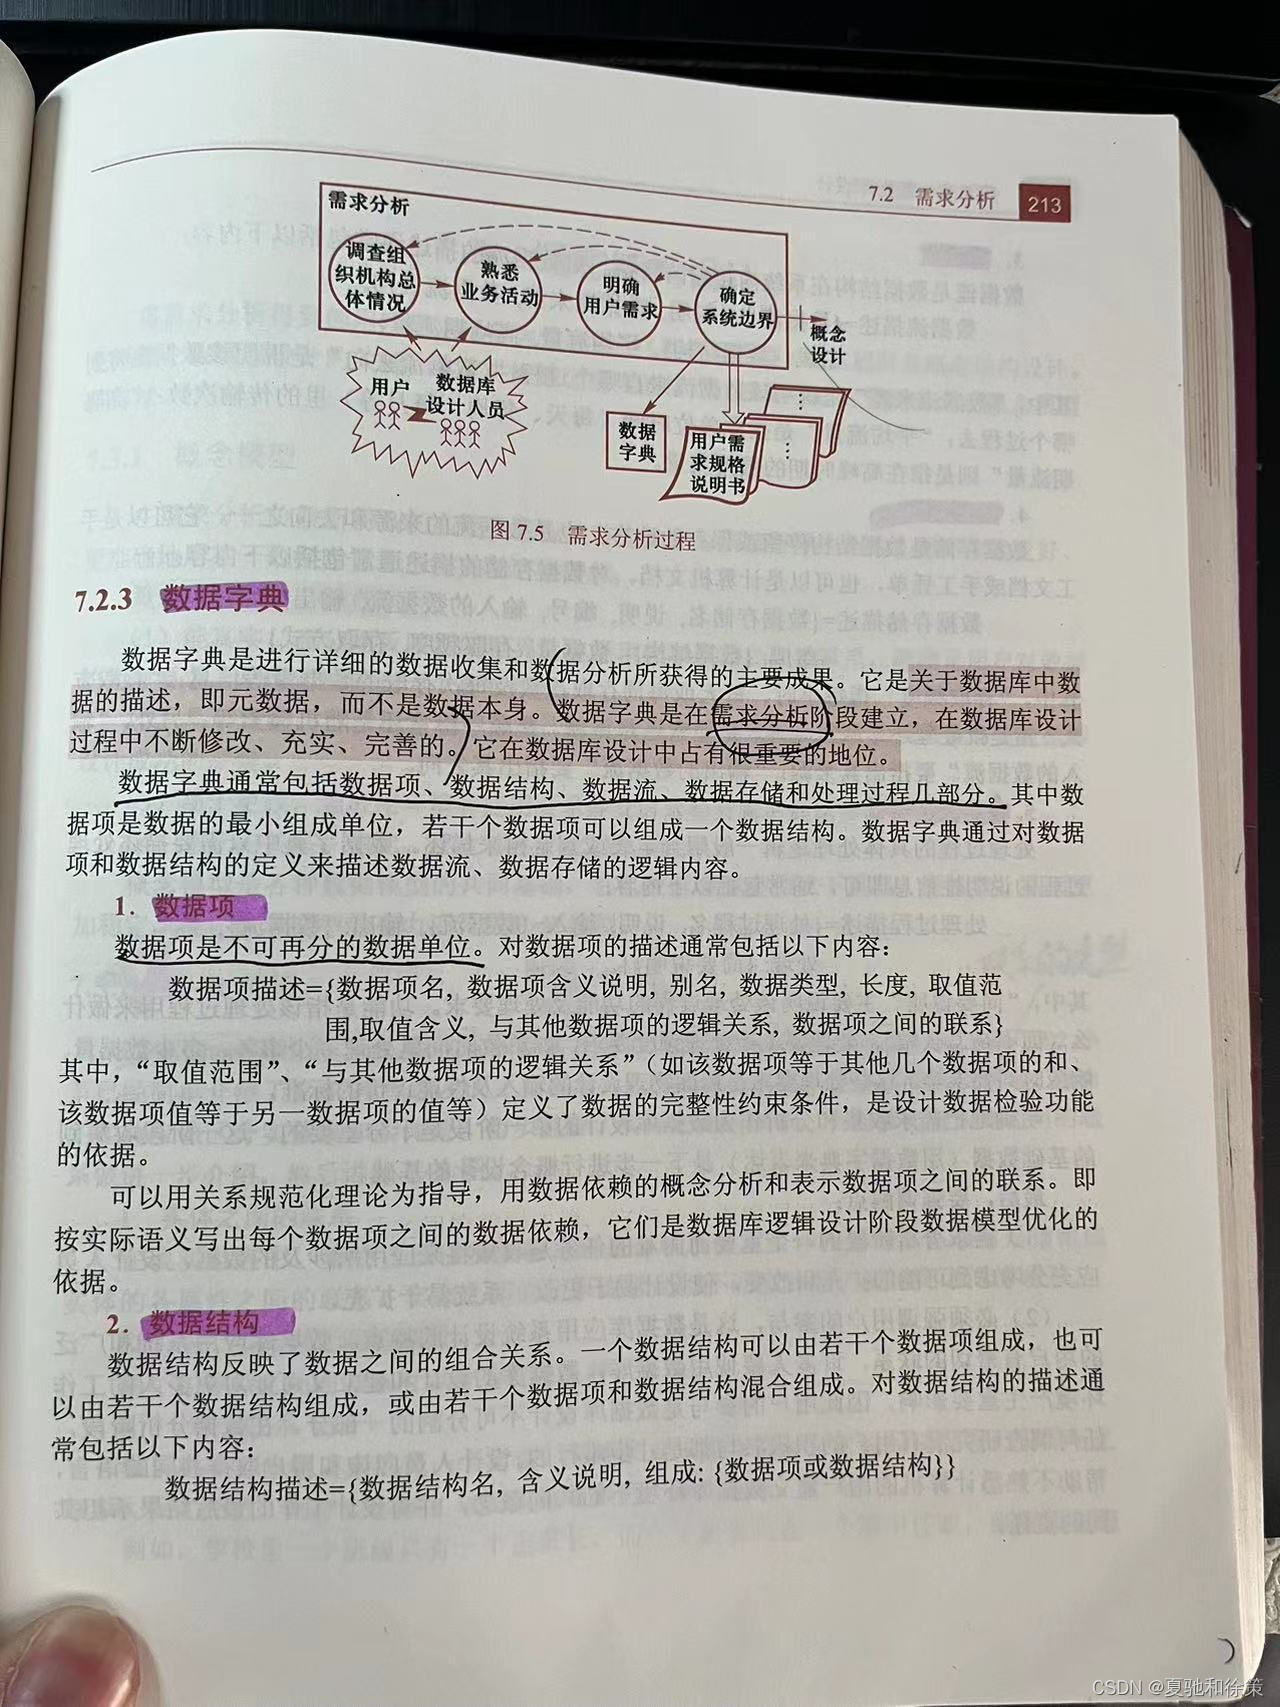 7.2 需求分析 213
需求分析
调查组
织机构总
体情况
熟悉
业务活动
明确
用户需求
确定
系统边界
概念
设计
用户
数据库
设计人员
数据
字典
用户需
求规格
说明书
图 7.5 需求分析过程
7.2.3 数据字典
数据字典是进行详细的数据收集和数据分析所获得的主要成果。它是关于数据库中数
据的描述，即元数据，而不是数据本身。数据字典是在需求分析阶段建立，在数据库设计
过程中不断修改、充实、完善的。它在数据库设计中占有很重要的地位。
数据字典通常包括数据项、数据结构、数据流、数据存储和处理过程几部分。其中数
据项是数据的最小组成单位，若干个数据项可以组成一个数据结构。数据字典通过对数据
项和数据结构的定义来描述数据流、数据存储的逻辑内容。
1. 数据项
数据项是不可再分的数据单位。对数据项的描述通常包括以下内容：
数据项描述={数据项名, 数据项含义说明, 别名, 数据类型, 长度, 取值范
围,取值含义, 与其他数据项的逻辑关系, 数据项之间的联系}
其中，“取值范围”、“与其他数据项的逻辑关系”（如该数据项等于其他几个数据项的和、
该数据项值等于另一数据项的值等）定义了数据的完整性约束条件，是设计数据检验功能
的依据。
可以用关系规范化理论为指导，用数据依赖的概念分析和表示数据项之间的联系。即
按实际语义写出每个数据项之间的数据依赖，它们是数据库逻辑设计阶段数据模型优化的
依据。
2. 数据结构
数据结构反映了数据之间的组合关系。一个数据结构可以由若干个数据项组成，也可
以由若干个数据结构组成，或由若干个数据项和数据结构混合组成。对数据结构的描述通
常包括以下内容：
数据结构描述={数据结构名, 含义说明, 组成: {数据项或数据结构}}
CSDN @夏驰和徐策